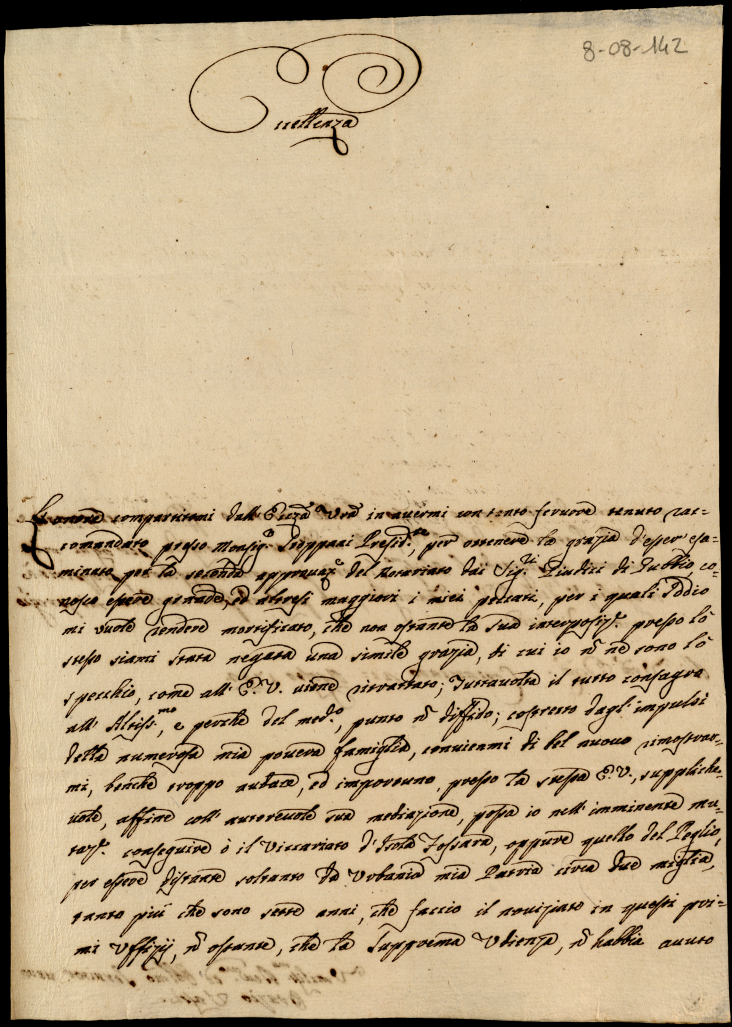 8-08-142
Eccellenza
L'onore compartitomi dall' Ecczã Vrã in avermi con tanto fervore tenuto rac=
comandato presso Monsig.r Presid.te, per ottenere la grazia d'esser esa=
minato per la seconda approvaz.e del Notariato dai Sig.ri Giudici di Gubbio, co=
nosco essere grandi, ed altresì maggiori i miei peccati, per i quali Iddio
mi vuole rendere mortificato, che non ostante la sua interposiz.e presso lo
stesso siami stata negata una simile grazia, di cui io ñ ne sono lo
specchio, come all' E.V. viene riportato; Tuttavolta il tutto consagro
all' Altiss.mo, e perche del med.o, punto ñ diffido; costretto dagl' impulsi
della numerosa mia povera famiglia, convienmi di bel nuovo rimostrar=
mi, benche troppo audace, ed importuno, presso la stessa E.V., suppliche=
vole, affine coll' autorevole sua mediazione, possa io nell' imminente mu=
taz.e conseguire ò il Vicariato d'Isola Fossara, oppure quello del Peglio,
per essere distante soltanto da Urbania mia Patria circa due miglia,
tanto più che sono sette anni, che faccio il noviziato in questi pri=
mi Uffizij, ñ ostante, che la Supprema Udienza, ñ habbia avuto